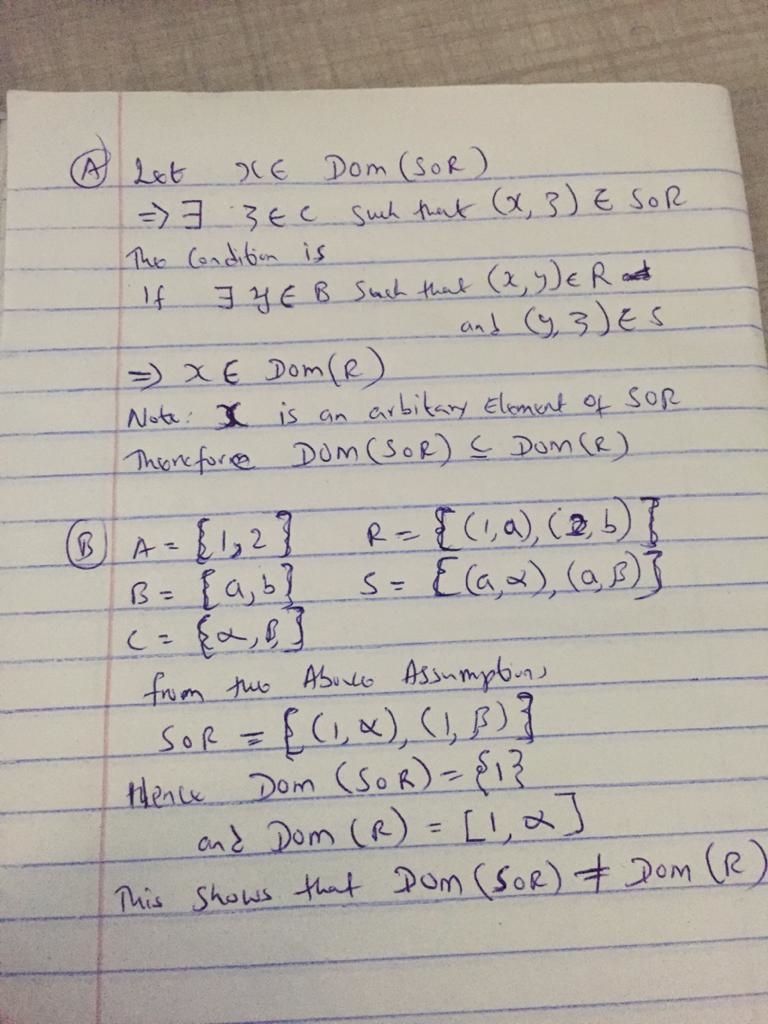 Ⓐ Let x ∈ Dom (SoR)
=> ∃ z ∈ C such that (x, z) ∈ SoR
The Condition is
If ∃ y ∈ B such that (x, y) ∈ R
and (y, z) ∈ S
=> x ∈ Dom(R)
Note: x is an arbitary Element of SoR
Therefore Dom (SoR) ⊆ Dom (R)
Ⓑ A = {1, 2} R = {(1, a), (2, b)}
B = {a, b} S = {(a, α), (a, β)}
C = {α, β}
from the Above Assumptions
SoR = {(1, α), (1, β)}
Hence Dom (SoR) = {1}
and Dom (R) = [1, α]
This Shows that Dom (SoR) ≠ Dom (R)